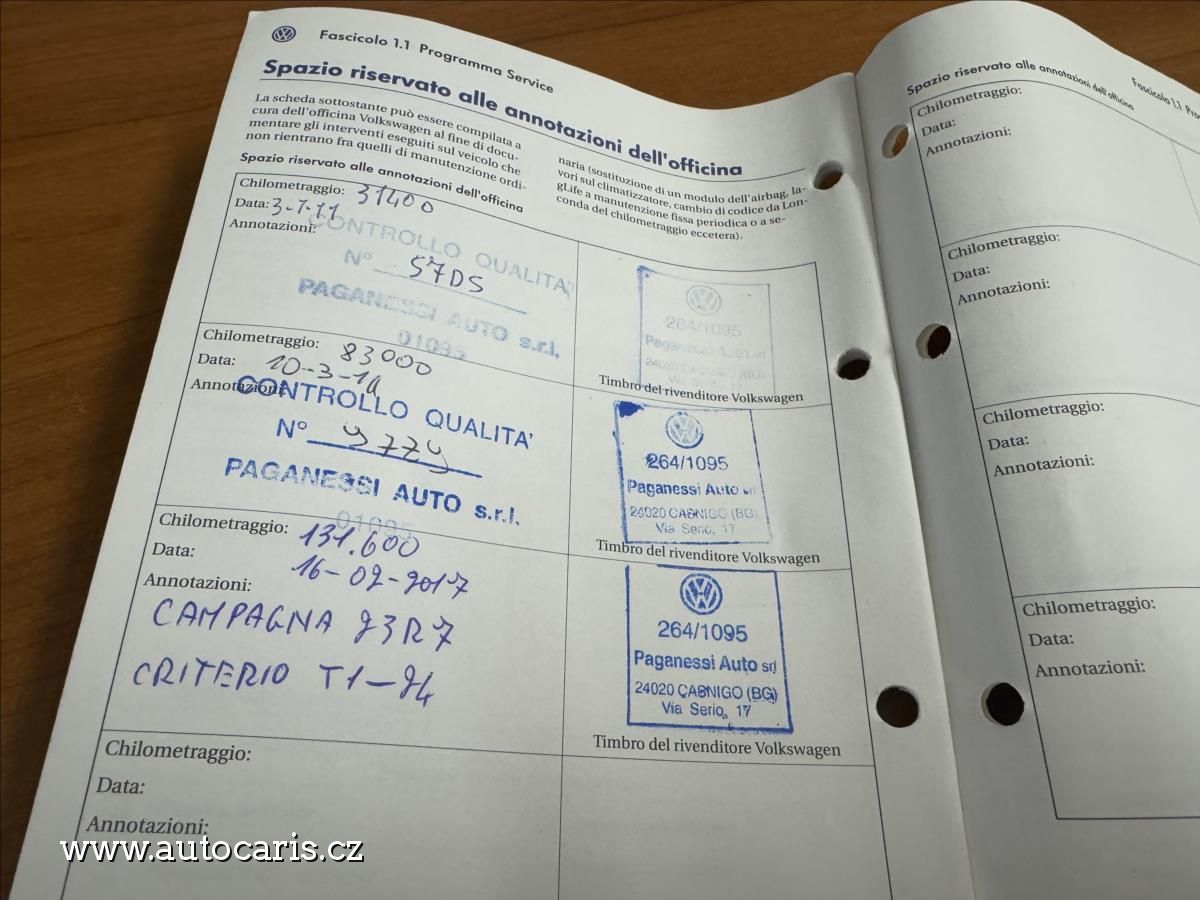 Fascicolo 1.1 Programma Service
Spazio riservato alle annotazioni dell'officina
La scheda sottostante può essere compilata a
cura dell'officina Volkswagen al fine di docu-
mentare gli interventi eseguiti sul veicolo che
non rientrano fra quelli di manutenzione ordi-
naria (sostituzione di un modulo dell'airbag, la-
vori sul climatizzatore, cambio di codice da Lon-
gLife a manutenzione fissa periodica o a se-
conda del chilometraggio eccetera).
Spazio riservato alle annotazioni dell'officina
Chilometraggio: 31400
Data: 3-1-11
Annotazioni:
CONTROLLO QUALITA'
N° 57DS
PAGANESSI AUTO s.r.l.
01095
264/1095
Paganessi Auto srl
24020 CASNIGO (BG)
Via Serio, 17
Timbro del rivenditore Volkswagen
Chilometraggio: 83000
Data: 10-3-14
Annotazioni:
CONTROLLO QUALITA'
N°
PAGANESSI AUTO s.r.l.
01095
264/1095
Paganessi Auto srl
24020 CASNIGO (BG)
Via Serio, 17
Timbro del rivenditore Volkswagen
Chilometraggio: 131.600
Data: 16-02-2017
Annotazioni:
CAMPAGNA 23R7
CRITERIO T1-24
264/1095
Paganessi Auto srl
24020 CASNIGO (BG)
Via Serio, 17
Timbro del rivenditore Volkswagen
Chilometraggio:
Data:
Annotazioni:
Fascicolo 1.1
Spazio riservato alle annotazioni dell'officina
Chilometraggio:
Data:
Annotazioni:
Chilometraggio:
Data:
Annotazioni:
Chilometraggio:
Data:
Annotazioni:
Chilometraggio:
Data:
Annotazioni:
www.autocaris.cz